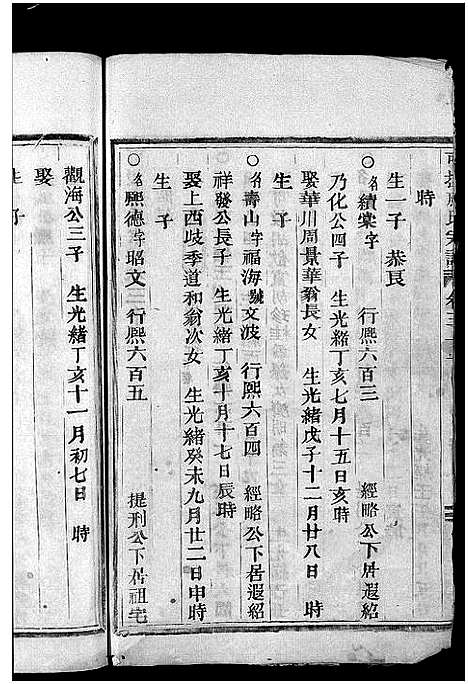 時
生一子 恭艮
○名續棠字 行熙六百三 經略公下居遐紹
乃化公四子 生光緒丁亥七月十五日亥時
娶華川周景華翁長女 生光緒戊子十二月廿八日 時
生 子
○名壽山字福海號文波 行熙六百四 經略公下居遐紹
祥發公長子 生光緒丁亥十月十七日辰時
娶上西歧季道和翁次女 生光緒癸未九月廿二日申時
生 子
○名熙德字昭文 行熙六百五 提刑公下居祖宅
觀海公三子 生光緒丁亥十一月初七日 時
娶
生 子